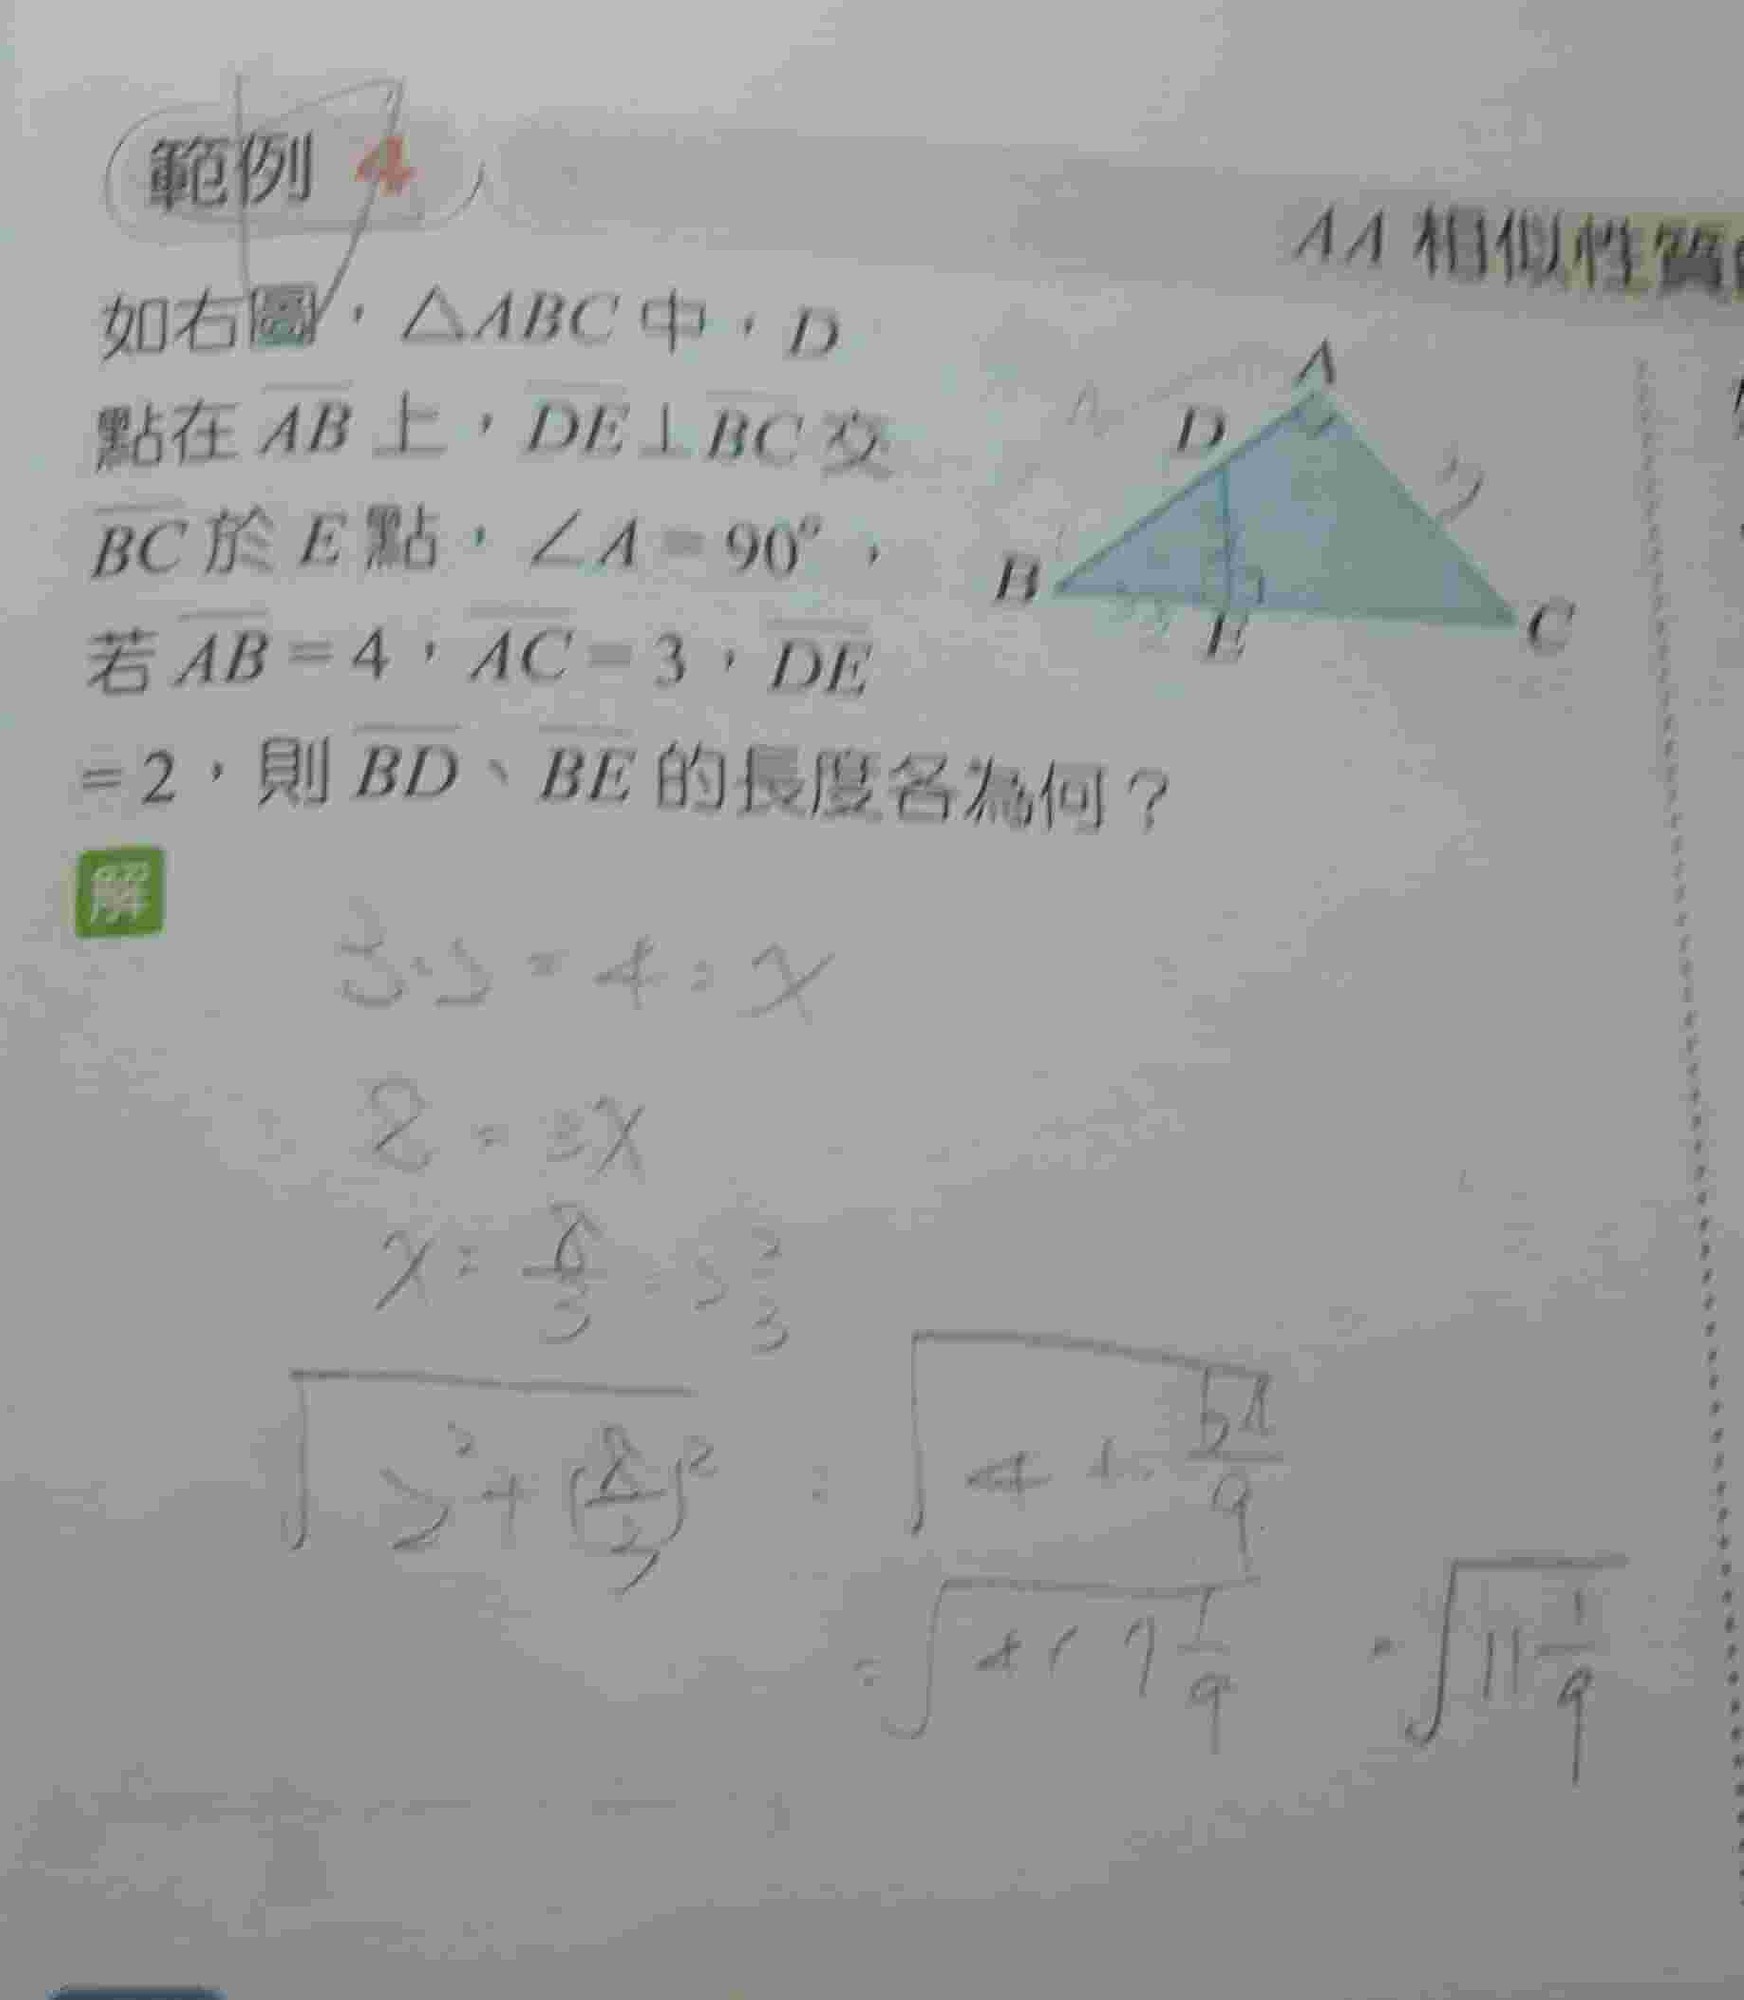 範例 4
AA 相似性質
如右圖，△ABC 中，D
點在 AB 上，DE⊥BC 交
BC 於 E 點，∠A＝90°，
若 AB＝4，AC＝3，DE
＝2，則 BD、BE 的長度各為何？
A
D
B
E
C
3
解
3:2=4:x
8=3x
x=8/3=2 2/3
√(2²+(8/3)²) = √(4+64/9)
=√(4+7 1/9) =√(11 1/9)